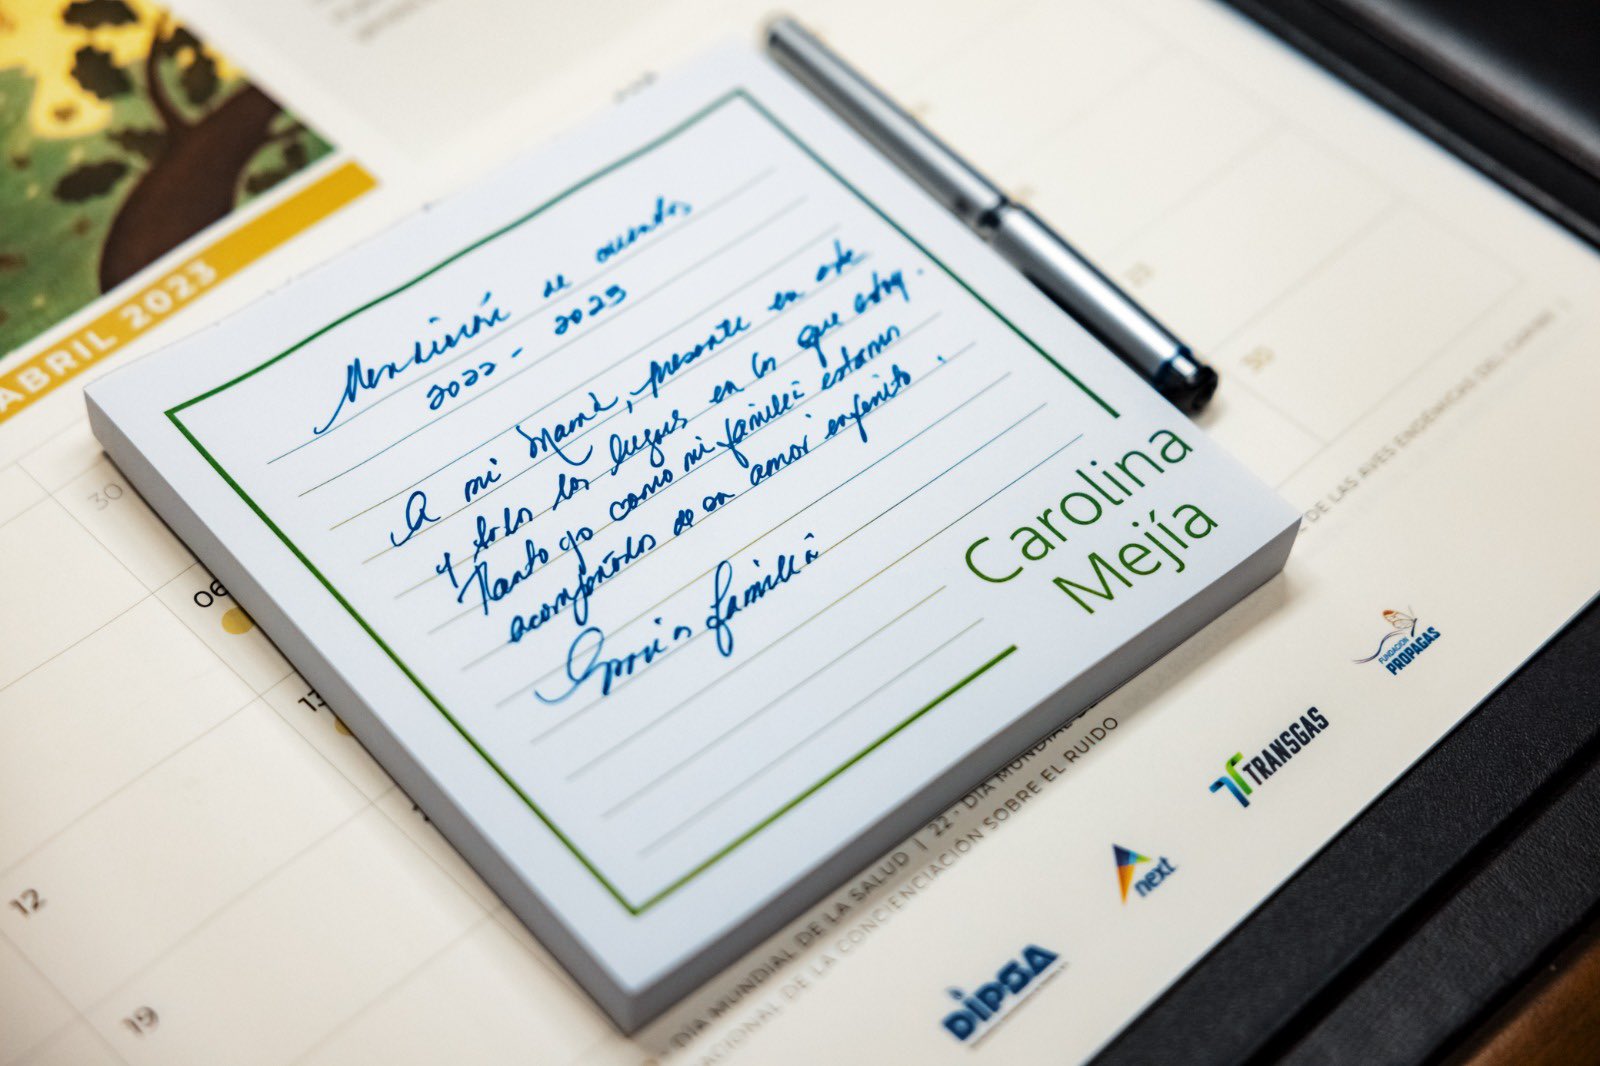 ABRIL 2023
Rendición de cuentas
2022 - 2023
A mi Mamá, presente en este
y todos los lugares en los que estoy.
Tanto yo como mi familia estamos
acompañados de su amor infinito.
Gracias familia
Carolina
Mejía
30
06
13
12
19
30
DÍA MUNDIAL DE LA SALUD | 22 - DÍA MUNDIAL DE
ACIONAL DE LA CONCIENCIACIÓN SOBRE EL RUIDO
DE LAS AVES ENDÉMICAS DEL CARIBE
FUNDACIÓN
PROPAGAS
TRANSGAS
next
DIPSA